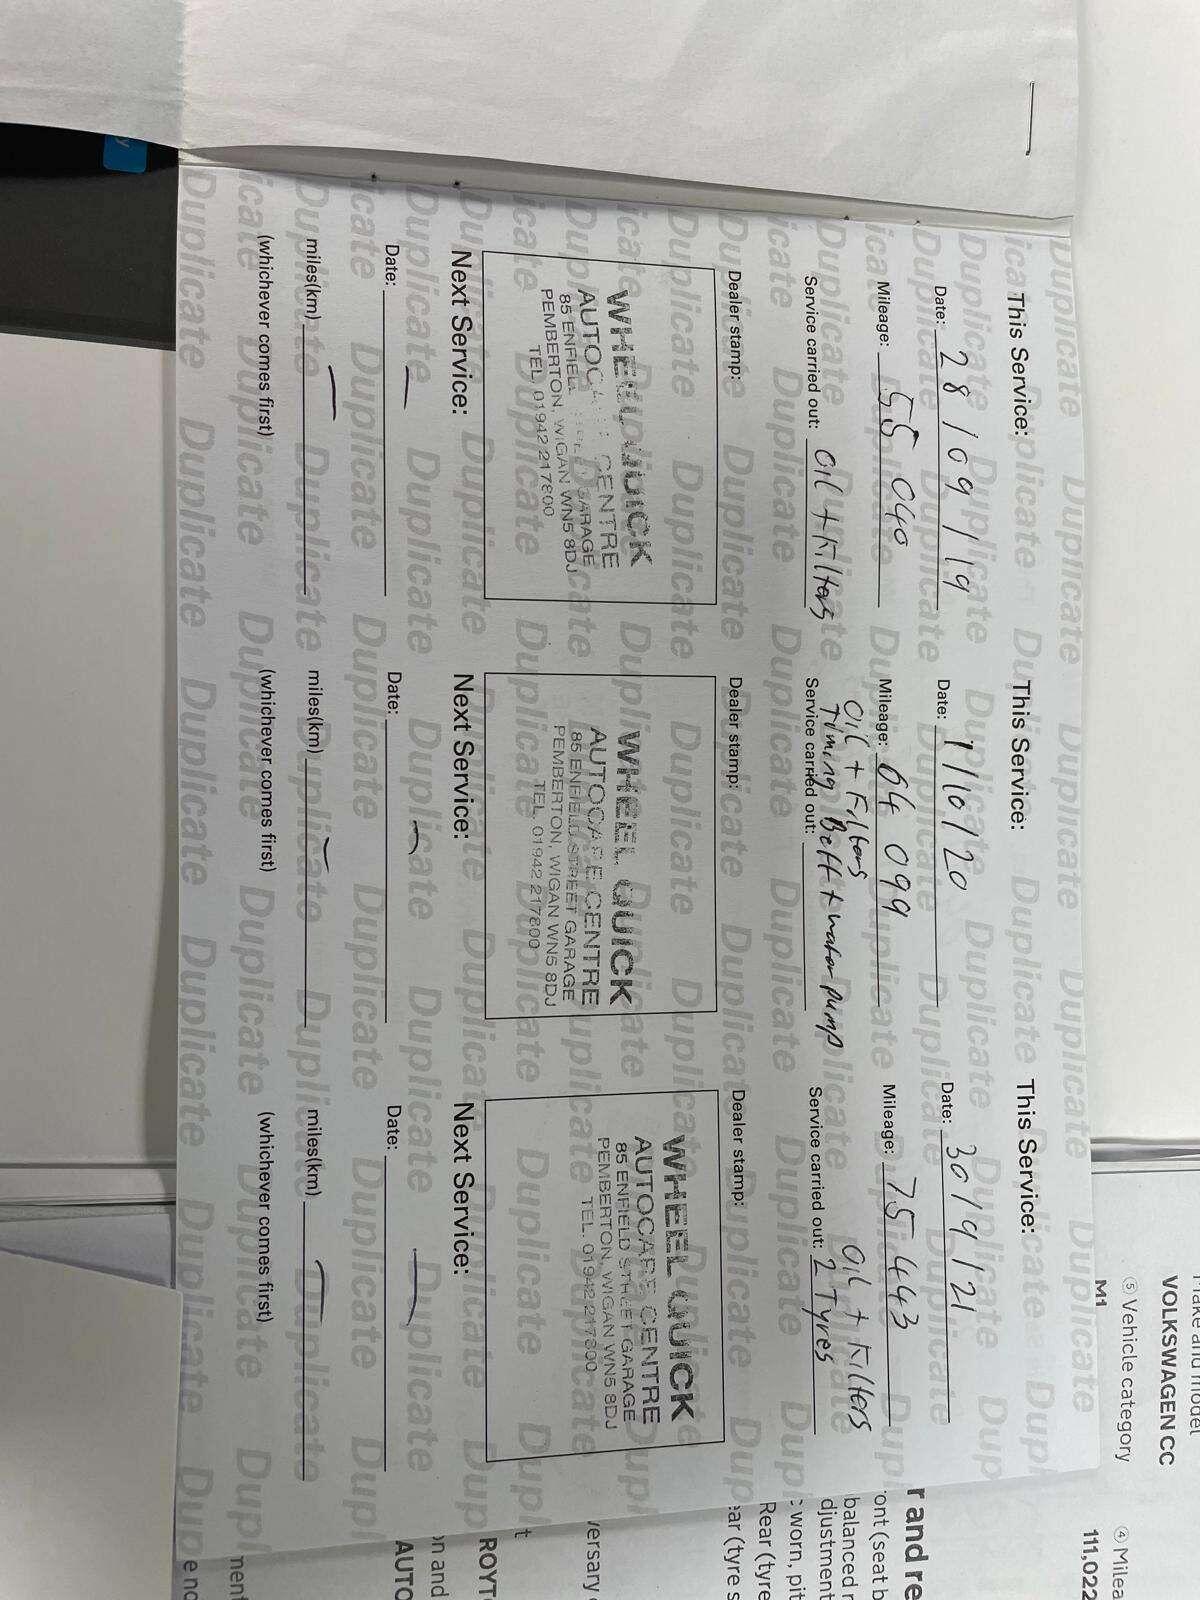 This Service:
Date: 28/09/19
Mileage: 55 040
Service carried out: oil + filters
Dealer stamp:
WHEEL QUICK
AUTOCARE CENTRE
85 ENFIELD STREET GARAGE
PEMBERTON, WIGAN WN5 8DJ
TEL. 01942 217800
Next Service:
Date:
miles(km)
(whichever comes first)
This Service:
Date: 1/10/20
Mileage: 64 099
Oil + Filters
Service carried out: Timing Belt + water pump
Dealer stamp:
WHEEL QUICK
AUTOCARE CENTRE
85 ENFIELD STREET GARAGE
PEMBERTON, WIGAN WN5 8DJ
TEL. 01942 217800
Next Service:
Date:
miles(km)
(whichever comes first)
This Service:
Date: 30/9/21
Mileage: 75 443
oil + filters
Service carried out: 2 Tyres
Dealer stamp:
WHEEL QUICK
AUTOCARE CENTRE
85 ENFIELD STREET GARAGE
PEMBERTON, WIGAN WN5 8DJ
TEL. 01942 217800
Next Service:
Date:
miles(km)
(whichever comes first)
Duplicate Duplicate Duplicate Duplicate
VOLKSWAGEN CC
⑤ Vehicle category
M1
④ Milea
111,022
r and re
ont (seat b
balanced r
djustment
worn, pit
Rear (tyre
ear (tyre s
versary
ROYT
on and
AUTO
ment